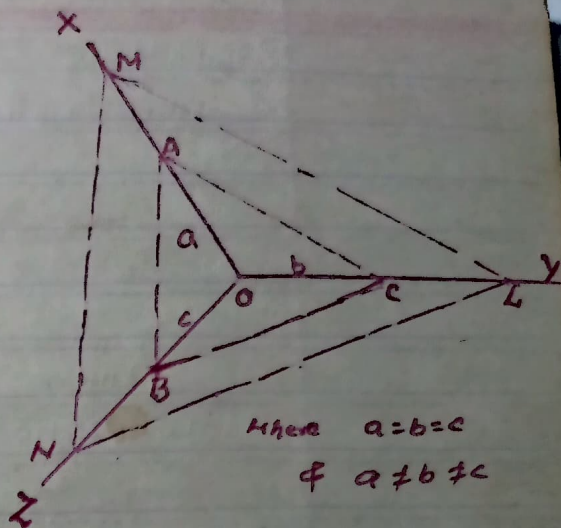 X
M
A
a
b
Y
O
C
L
c
B
N
Z
Where a=b=c
& a≠b≠c